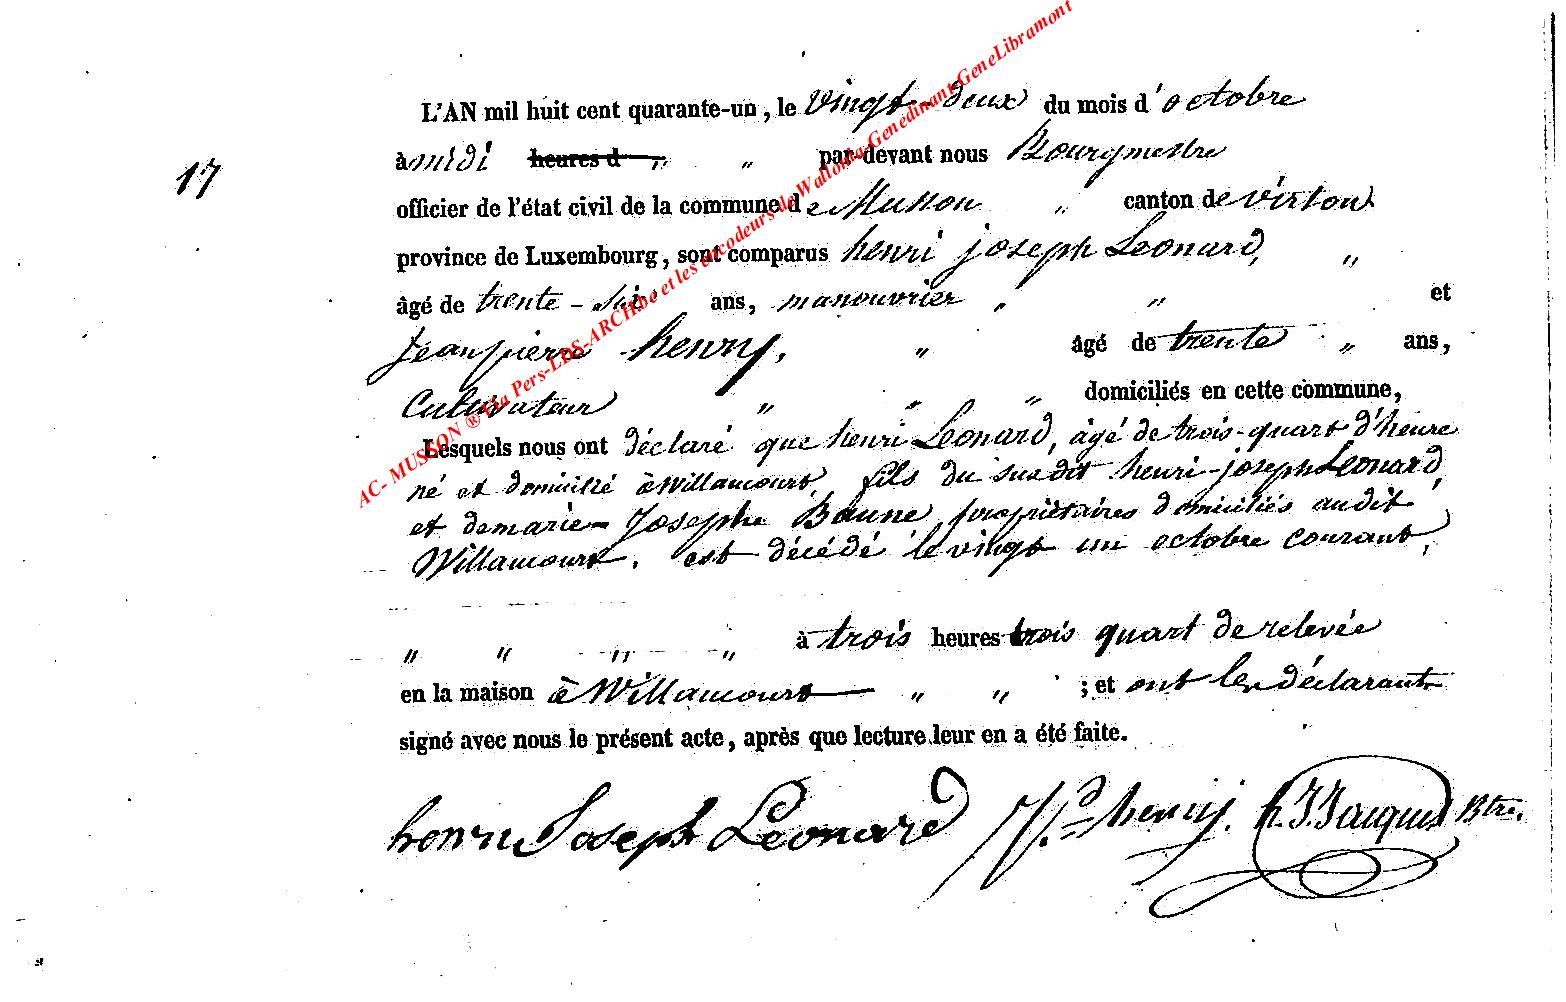 L'AN mil huit cent quarante-un, le vingt-deux du mois d'octobre
17
à midi heures d " " par devant nous Bourgmestre
officier de l'état civil de la commune de Musson " canton de virton
province de Luxembourg, sont comparus henri joseph Leonard, "
âgé de trente-six ans, manouvrier " " et
Jeanpierre henry, " âgé de trente " ans,
Cultivateur " " " domiciliés en cette commune,
Lesquels nous ont déclaré que henri Leonard, âgé de trois-quart d'heure
né et domicilié à Willancourt, fils du susdit henri-joseph Leonard,
et de marie-Josephe Baune, propriétaires domiciliés audit
Willancourt, est décédé le vingt un octobre courant,
" " " " à trois heures trois quart de relevée
en la maison à Willancourt " " ; et ont les déclarants
signé avec nous le présent acte, après que lecture leur en a été faite.
henri Joseph Leonard J. P. henry. h. J. Jacques Btre.
AC- MUSSON ® Via Pers-LDS-ARCH.be et les encodeurs de Wallonia-Genedinant-GeneLibramont